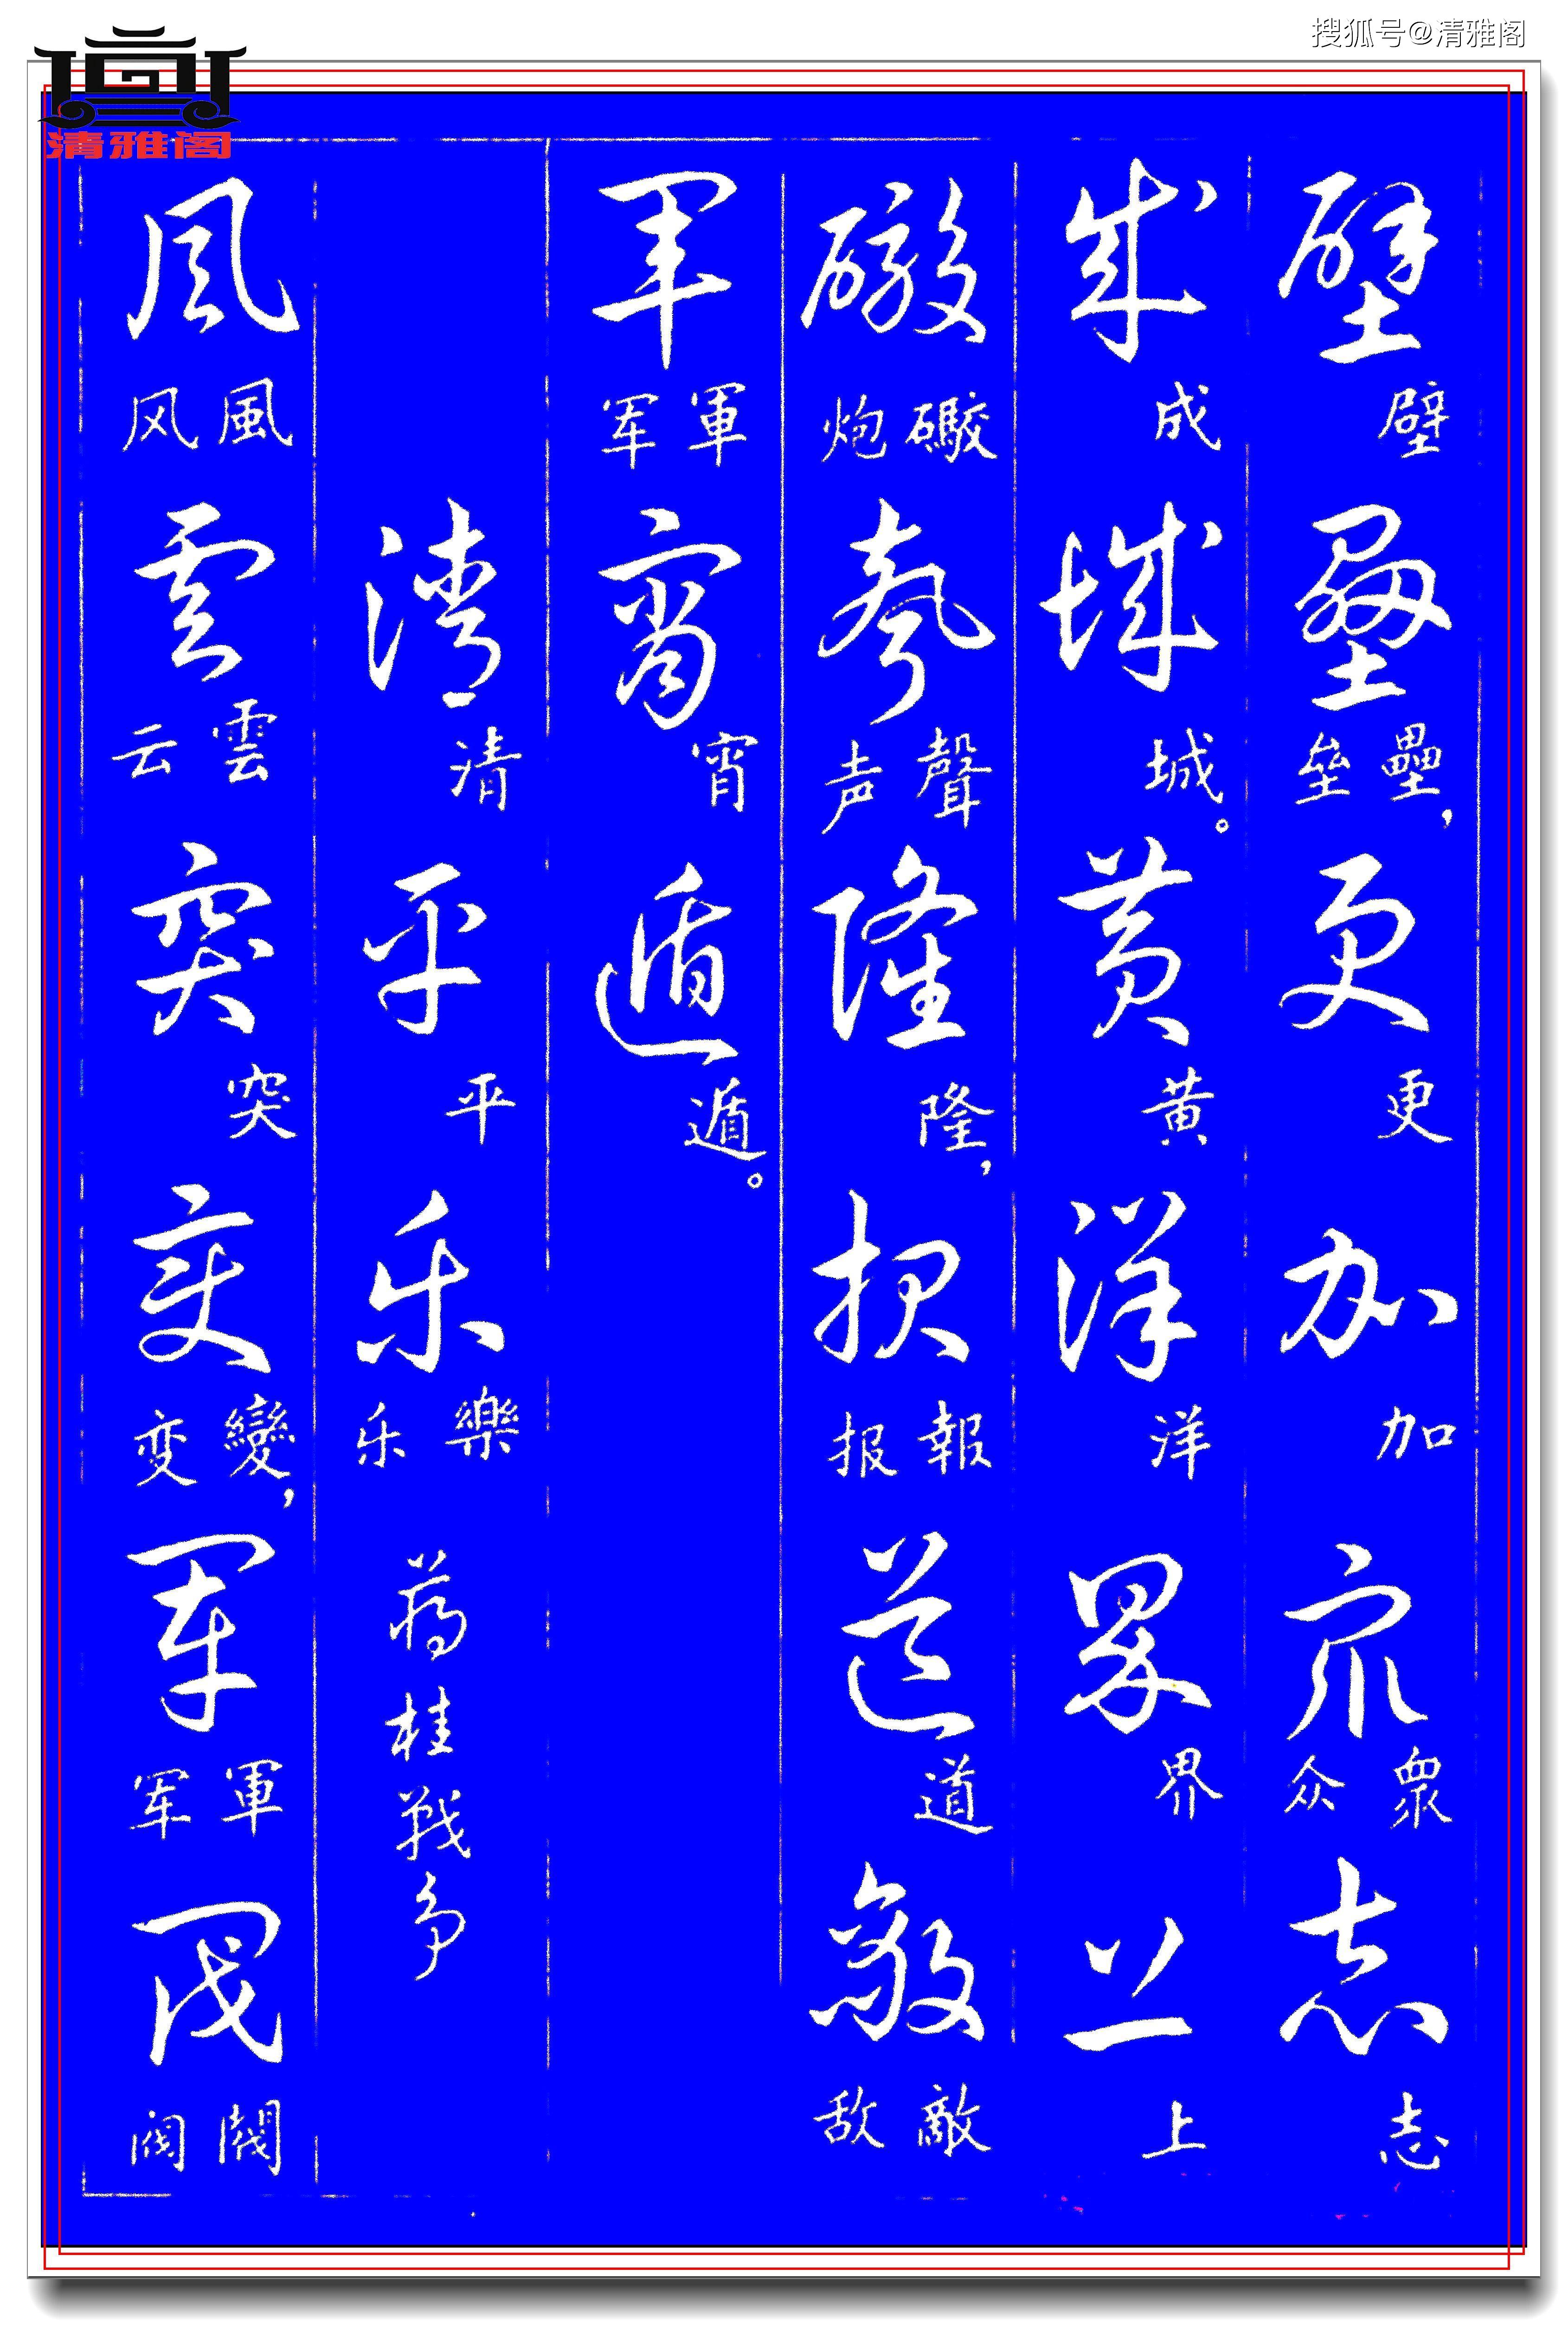 搜狐号@清雅阁
清雅阁
壁壘更加衆志
壁 壘垒， 更 加 衆众 志
成城黄洋界上
成 城。 黄 洋 界 上
礮聲隆報道敵
礮炮 聲声 隆， 報报 道 敵敌
軍宵遁
軍军 宵 遁。
清平樂
清 平 樂乐 蒋桂战争
風雲突變軍閥
風风 雲云 突 變变， 軍军 閥阀